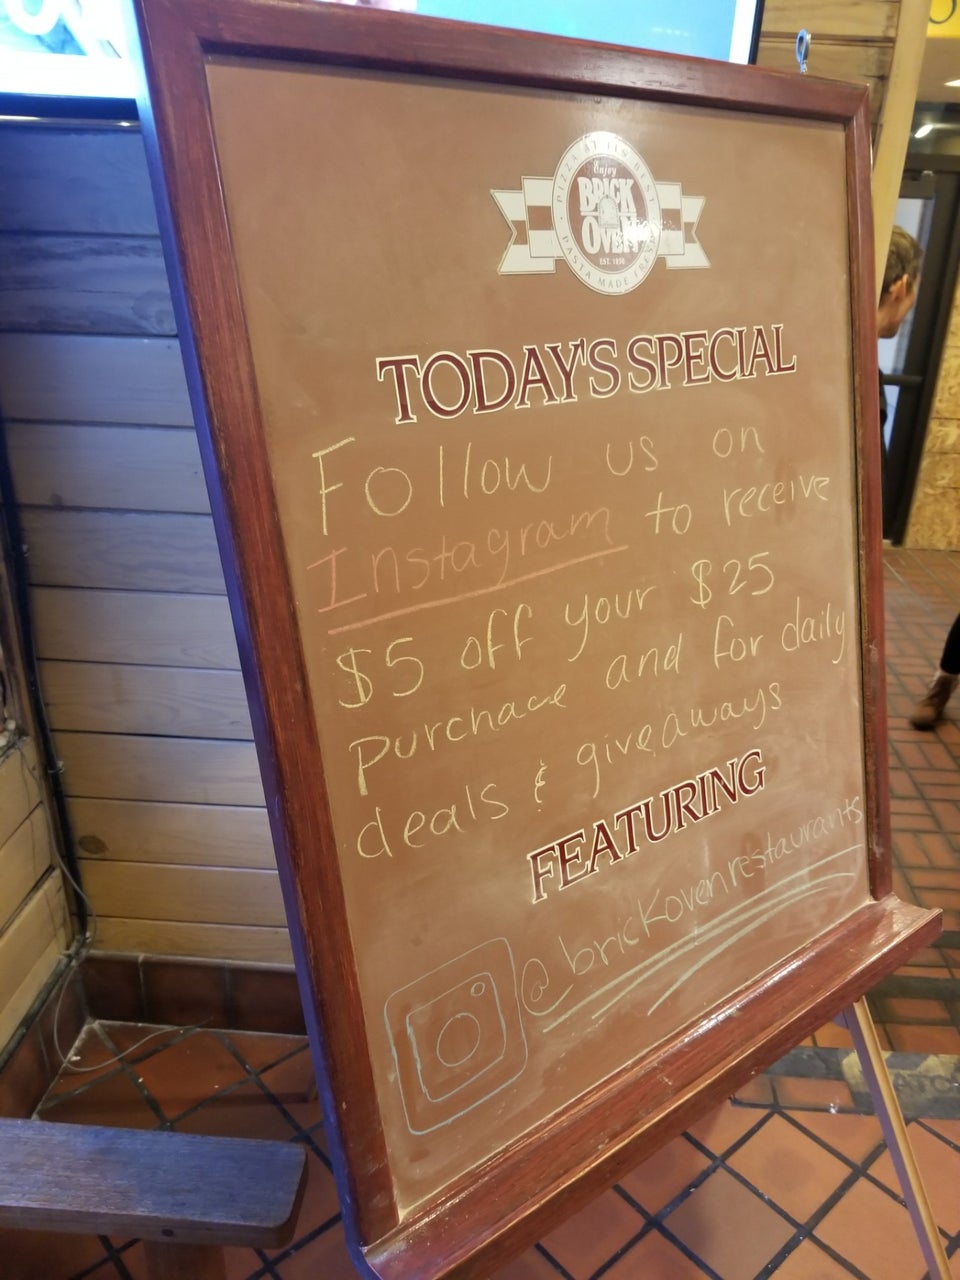 PIZZA AT ITS BEST
Enjoy
BRICK
OVEN
EST. 1956
PASTA MADE FRESH
TODAY'S SPECIAL
Follow us on
Instagram to receive
$5 off your $25
purchase and for daily
deals & giveaways
FEATURING
@brickovenrestaurants